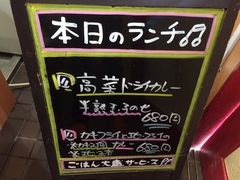 本日のランチ
高菜ドライカレー
半熟玉子のせ
680円
カキフライと
カレー 680円
ごはん大盛サービス